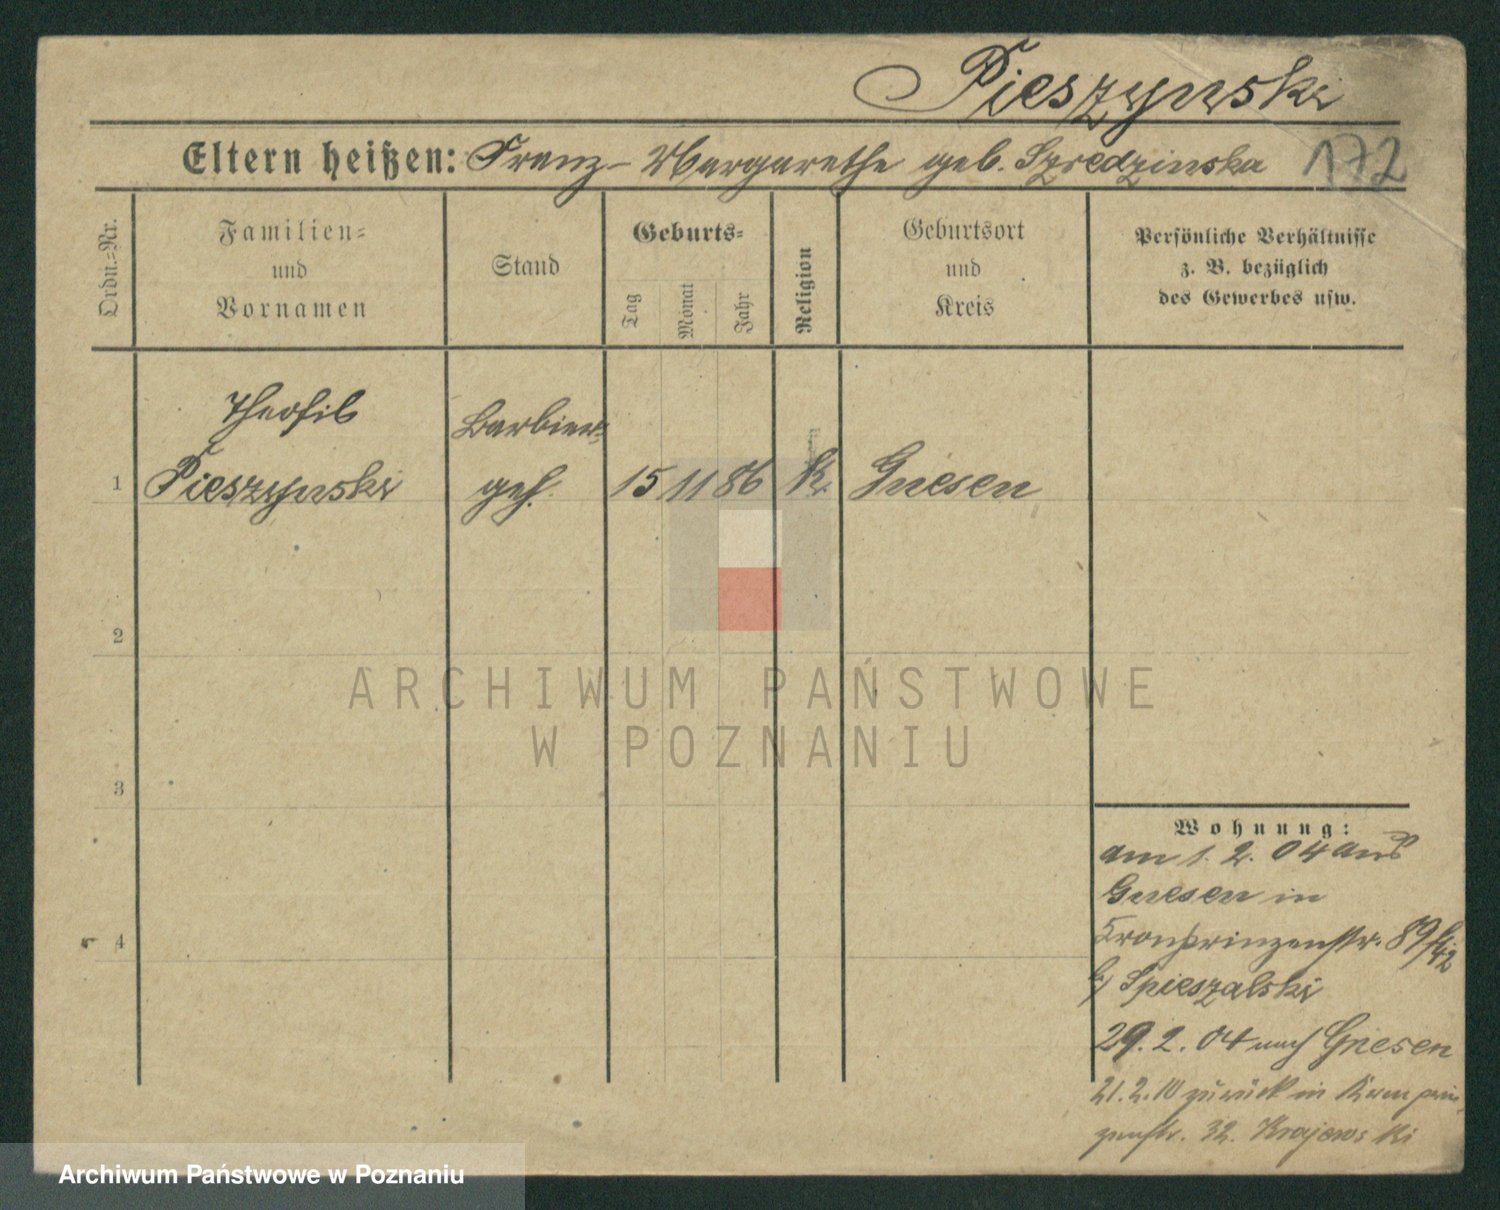 Pieszynski
Eltern heißen: Franz - Margarethe geb. Szredzinska 172
Ordn.-Nr.
Familien-
und
Vornamen
Stand
Geburts-
Tag
Monat
Jahr
Religion
Geburtsort
und
Kreis
Persönliche Verhältnisse
z. B. bezüglich
des Gewerbes usw.
Theofil
Barbier-
1 Pieszynski geh. 15 11 86 k. Gnesen
2
3
4
ARCHIWUM PAŃSTWOWE
W POZNANIU
Wohnung:
am 1. 2. 04 aus
Gnesen in
Kronprinzenstr. 89
b/ Spieszalski
29. 2. 04 nach Gnesen
21. 2. 10 zurück in Kronprin
zenstr. 32. Krajewski
Archiwum Państwowe w Poznaniu